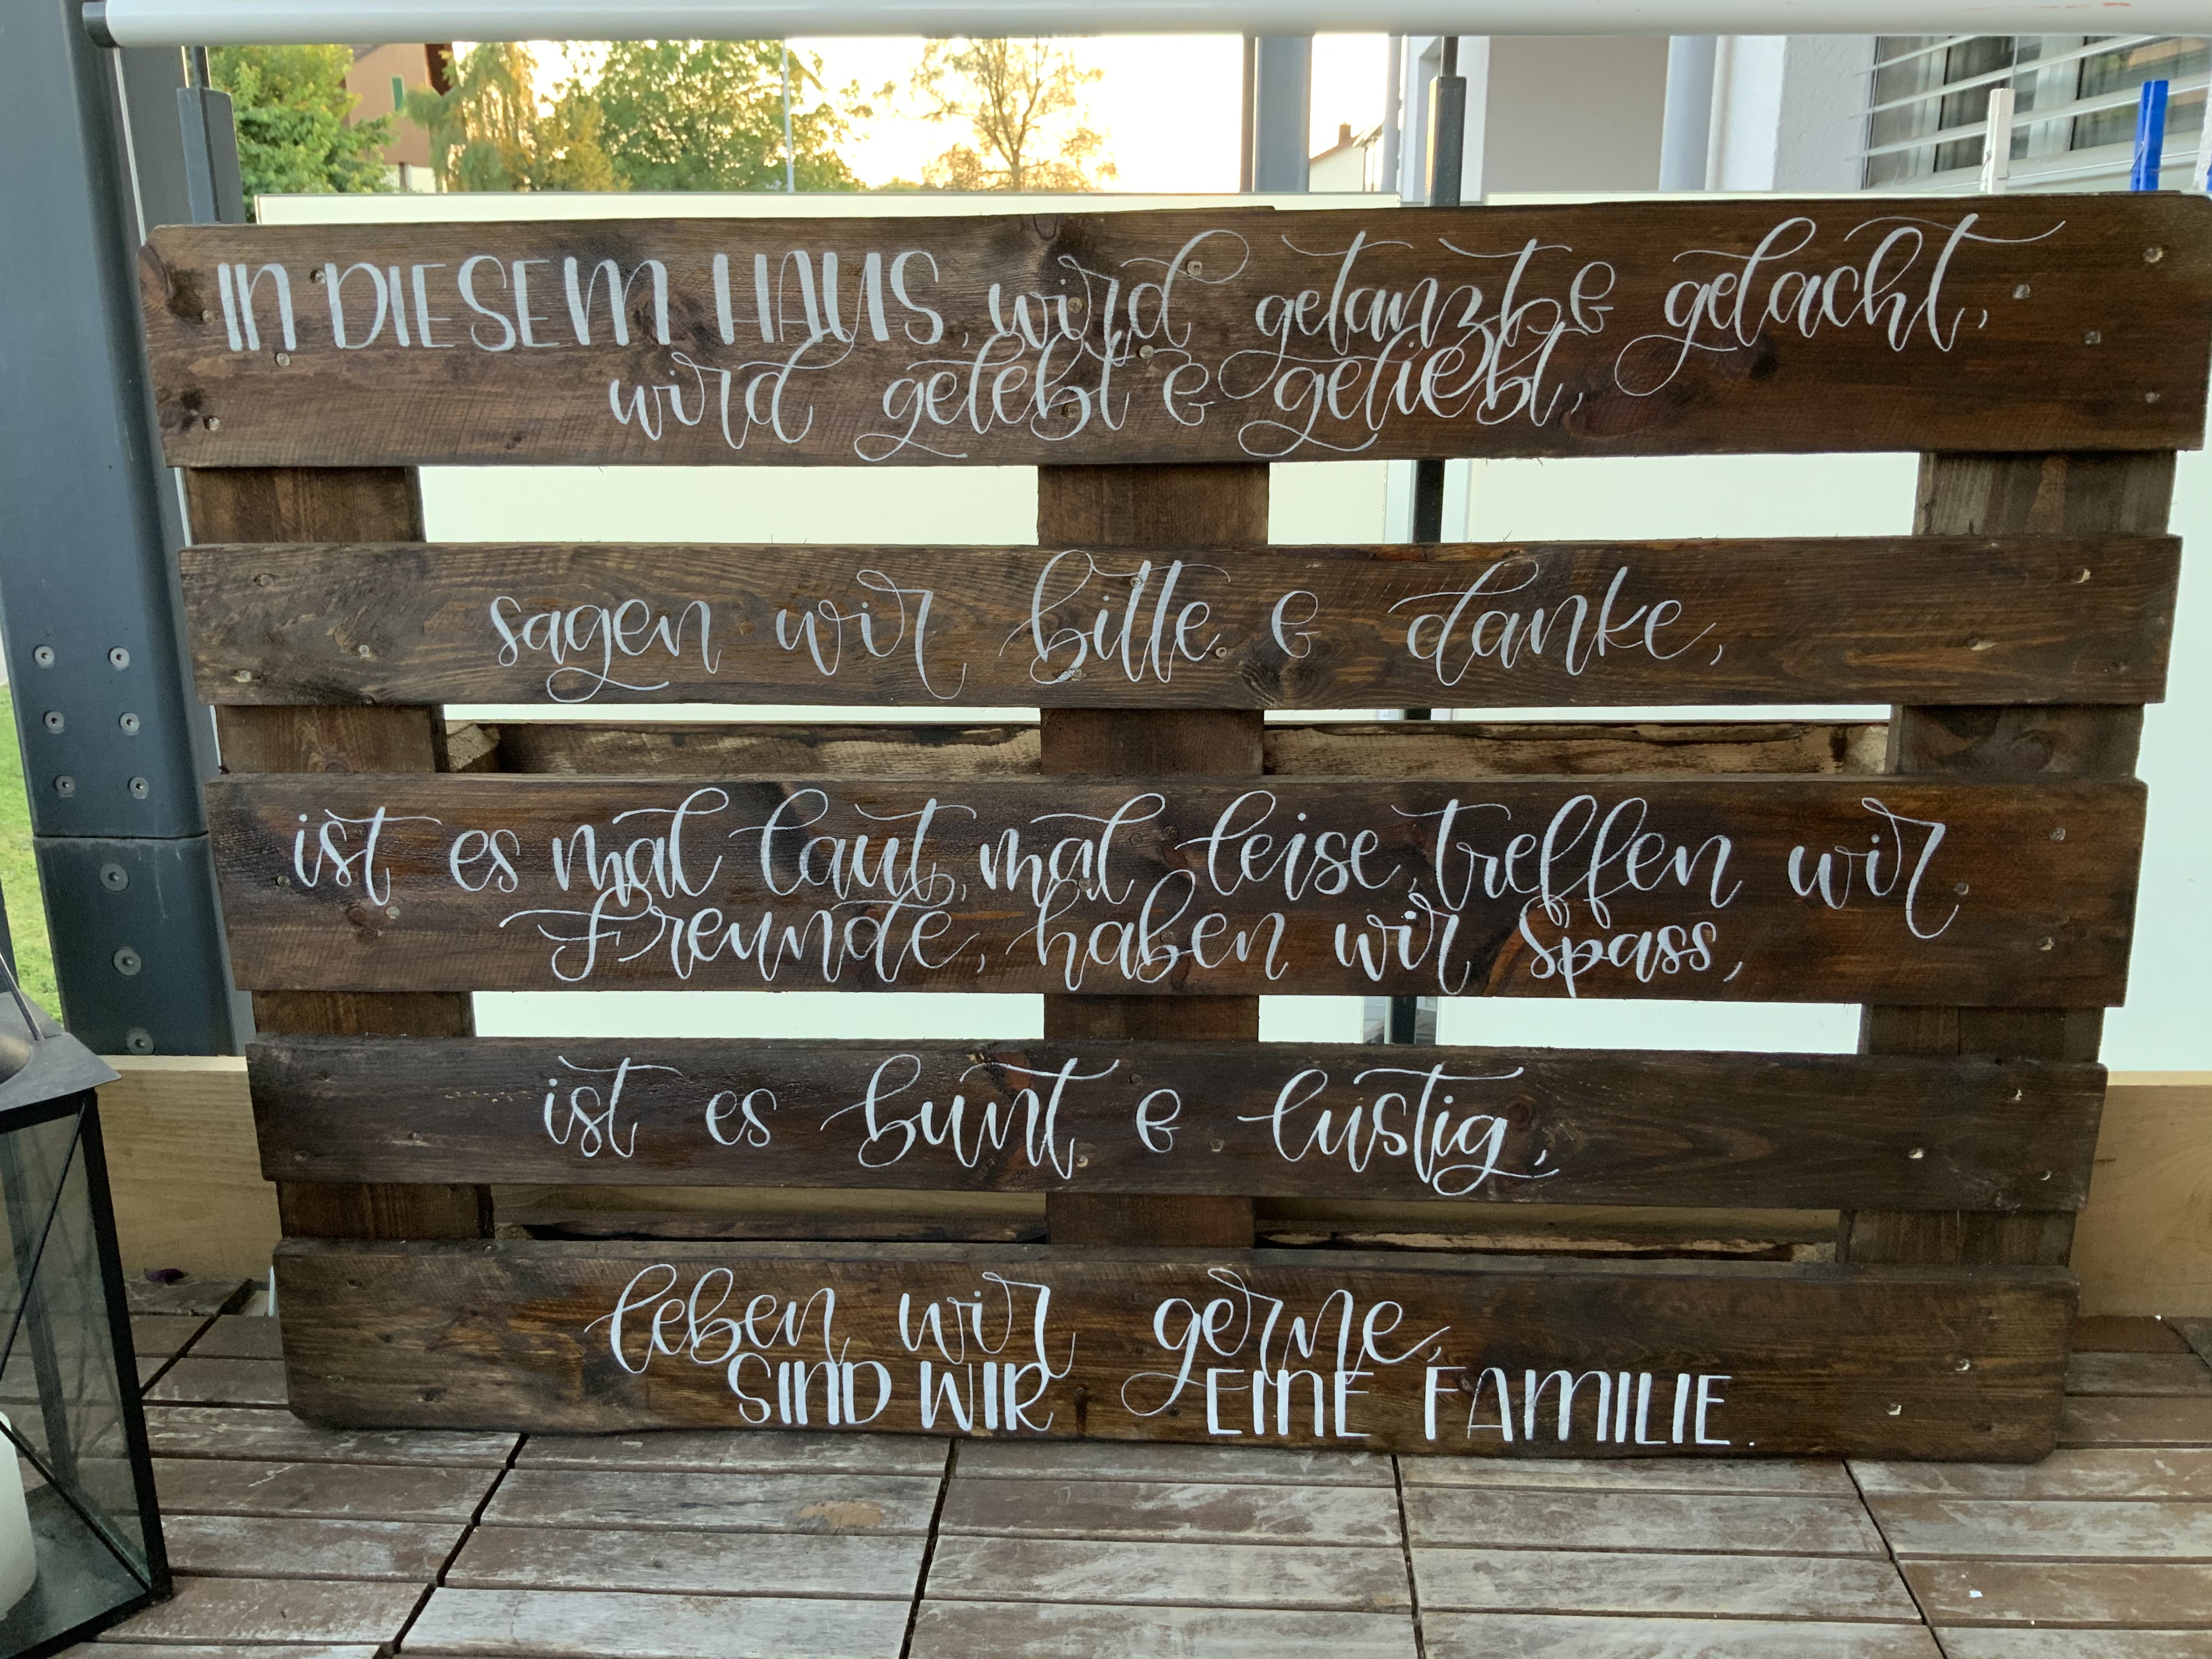 IN DIESEM HAUS, wird getanzt & gelacht,
wird gelebt & geliebt,
sagen wir bitte & danke,
ist es mal laut, mal leise, treffen wir
Freunde, haben wir Spass,
ist es bunt & lustig,
leben wir gerne,
SIND WIR EINE FAMILIE.